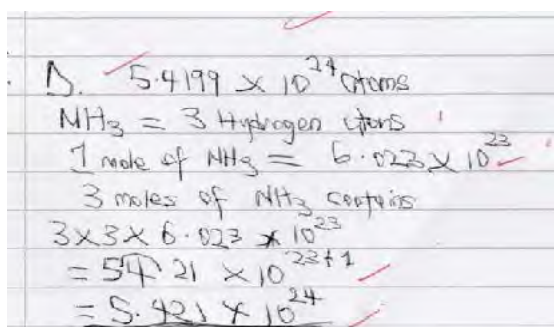 D. 5.4199 × 10²⁴ atoms
NH₃ = 3 Hydrogen atoms
1 mole of NH₃ = 6.023 × 10²³
3 moles of NH₃ contains
3×3× 6.023 × 10²³
= 54 21 × 10²³⁺¹
= 5.421 × 10²⁴